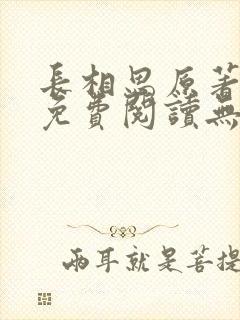 長相思原著
免費閱讀無
兩耳就是菩提